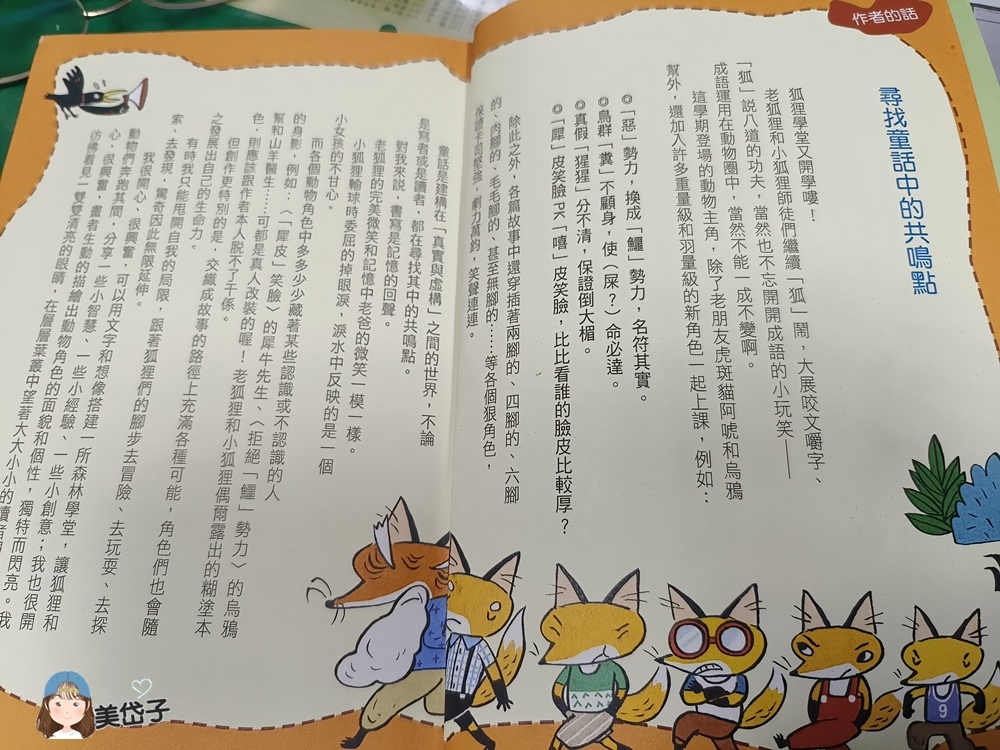 作者的話
尋找童話中的共鳴點
狐狸學堂又開學嘍！
老狐狸和小狐狸師徒們繼續「狐」鬧，大展咬文嚼字、
「狐」説八道的功夫，當然也不忘開開成語的小玩笑——
成語運用在動物圈中，當然不能一成不變啊。
這學期登場的動物主角，除了老朋友虎斑貓阿唬和烏鴉
幫外，還加入許多重量級和羽量級的新角色一起上課，例如：
◎「惡」勢力，換成「鱷」勢力，名符其實。
◎鳥群「糞」不顧身，使（屎？）命必達。
◎真假「猩猩」分不清，保證倒大楣。
◎「犀」皮笑臉PK「嘻」皮笑臉，比比看誰的臉皮比較厚？
除此之外，各篇故事中還穿插著兩腳的、四腳的、六腳
的、肉腳的、毛毛腳的、甚至無腳的……等各個狠角色，
劇力萬鈞，笑聲連連。
童話是建構在「真實與虛構」之間的世界，不論
是寫者或是讀者，都在尋找其中的共鳴點。
對我來説，書寫是記憶的回聲。
老狐狸的完美微笑和記憶中老爸的微笑一模一樣。
小狐狸輸球時委屈的掉眼淚，淚水中反映的是一個
小女孩的不甘心。
而各個動物角色中多多少少藏著某些認識或不認識的人
的身影，例如：〈「犀皮」笑臉〉的犀牛先生、〈拒絕「鱷」勢力〉的烏鴉
幫和山羊醫生……可都是真人改裝的喔！老狐狸和小狐狸偶爾露出的糊塗本
色，則應該跟作者本人脫不了干係。
但創作更特別的是，交織成故事的路徑上充滿各種可能，角色們也會隨
之發展出自己的生命力。
有時我只能甩開自我的局限，跟著狐狸們的腳步去冒險、去玩耍、去探
索、去發現，驚奇因此無限延伸。
我很開心、很興奮，可以用文字和想像搭建一所森林學堂，讓狐狸和
動物們奔跑其間，分享一些小智慧、一些小經驗、一些小創意；我也很開
心、很興奮，畫者生動的描繪出動物角色的面貌和個性，獨特而閃亮。我
彷彿看見一雙雙漂亮的眼睛，在層層葉叢中望著大大小小的讀者
9
美岱子